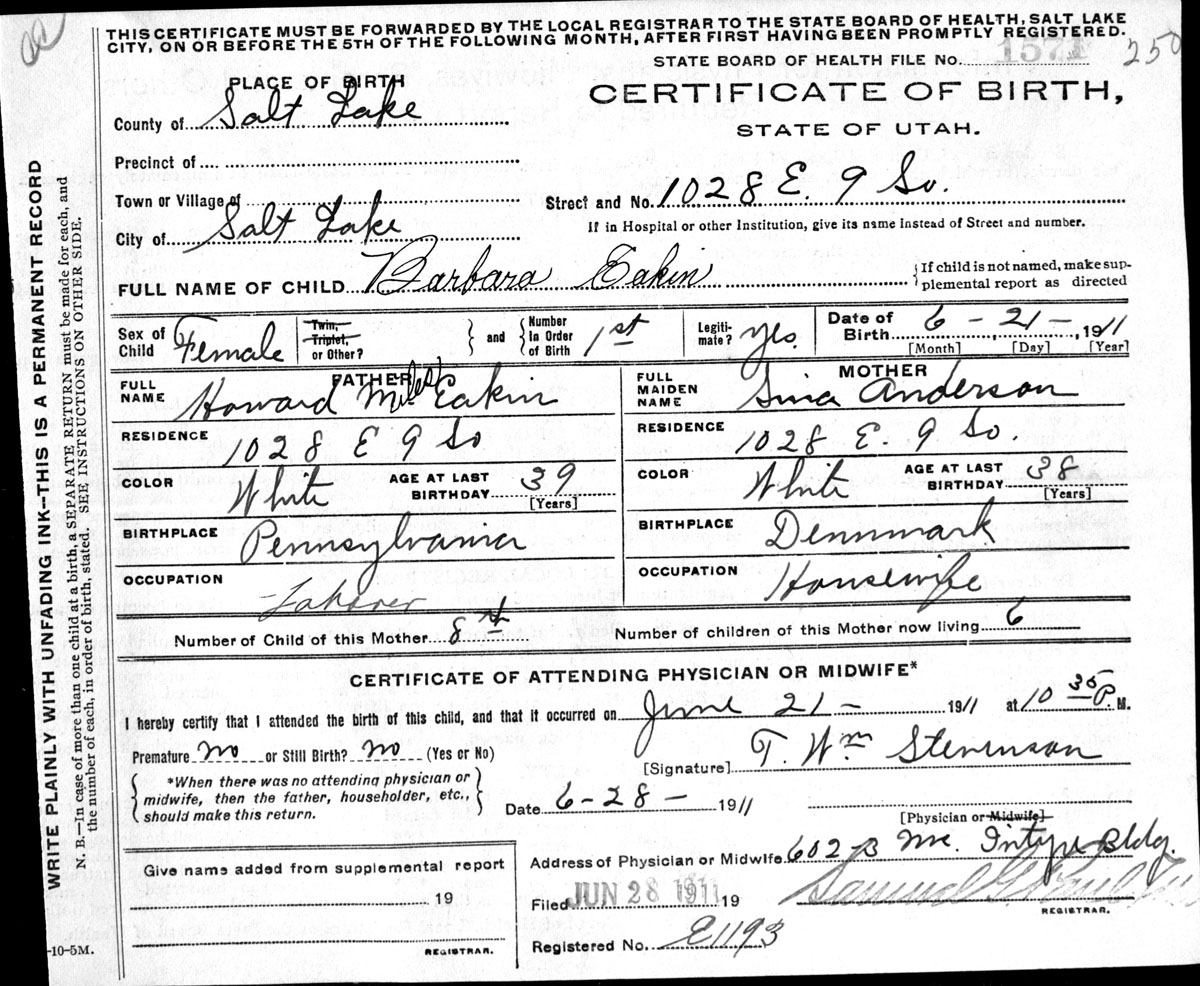 THIS CERTIFICATE MUST BE FORWARDED BY THE LOCAL REGISTRAR TO THE STATE BOARD OF HEALTH, SALT LAKE
CITY, ON OR BEFORE THE 5TH OF THE FOLLOWING MONTH, AFTER FIRST HAVING BEEN PROMPTLY REGISTERED.
STATE BOARD OF HEALTH FILE No. 1571 250
PLACE OF BIRTH
CERTIFICATE OF BIRTH,
STATE OF UTAH.
County of Salt Lake
Precinct of
Town or Village of
Street and No. 1028 E. 9 So.
City of Salt Lake
If in Hospital or other Institution, give its name Instead of Street and number.
FULL NAME OF CHILD Barbara Eakin
If child is not named, make sup-
plemental report as directed
Sex of Child Female
Twin, Triplet, or Other?
and
Number In Order of Birth 1st
Legiti-mate? Yes.
Date of Birth 6 - 21 - , 1911
[Month] [Day] [Year]
FATHER
FULL NAME Howard Miles Eakin
MOTHER
FULL MAIDEN NAME Sina Anderson
RESIDENCE 1028 E 9 So
RESIDENCE 1028 E. 9 So.
COLOR White
AGE AT LAST BIRTHDAY 39 [Years]
COLOR White
AGE AT LAST BIRTHDAY 38 [Years]
BIRTHPLACE Pennsylvania
BIRTHPLACE Dennmark
OCCUPATION Laborer
OCCUPATION Housewife
Number of Child of this Mother 8th
Number of children of this Mother now living 6
CERTIFICATE OF ATTENDING PHYSICIAN OR MIDWIFE*
I hereby certify that I attended the birth of this child, and that it occurred on June 21 - 1911 at 10 35 P. M.
Premature no or Still Birth? no (Yes or No)
[Signature] T. Wm Stevenson
*When there was no attending physician or
midwife, then the father, householder, etc.,
should make this return.
Date 6-28- 1911
[Physician or Midwife]
Give name added from supplemental report
19
REGISTRAR.
Address of Physician or Midwife 602-3 Bldg.
Filed JUN 28 1911 19
Samuel G. Paul
REGISTRAR.
Registered No. E1193
WRITE PLAINLY WITH UNFADING INK—THIS IS A PERMANENT RECORD
N. B.—In case of more than one child at a birth, a SEPARATE RETURN must be made for each, and
the number of each, in order of birth, stated. SEE INSTRUCTIONS ON OTHER SIDE.
-10-5M.